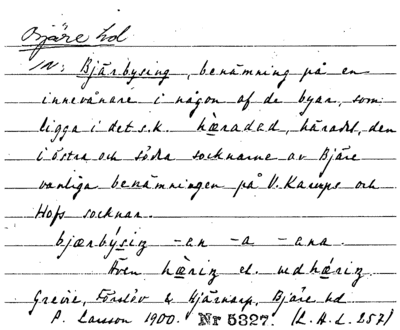 Bjäre hd
IN: Bjärbysing, benämning på en
innevånare i någon af de byar, som
ligga i det s.k. hæradad, häradet, den
i östra och södra socknarne av Bjäre
vanliga benämningen på V. Karups och
Hofs socknar.
bjærbýsiŋ -an -a -ana.
Även hæriŋ el. nedhǽriŋ.
Grevie, Förslöv & Hjärnarp, Bjäre hd
P. Larsson 1900. Nr 5327. (L.H.L. 257)